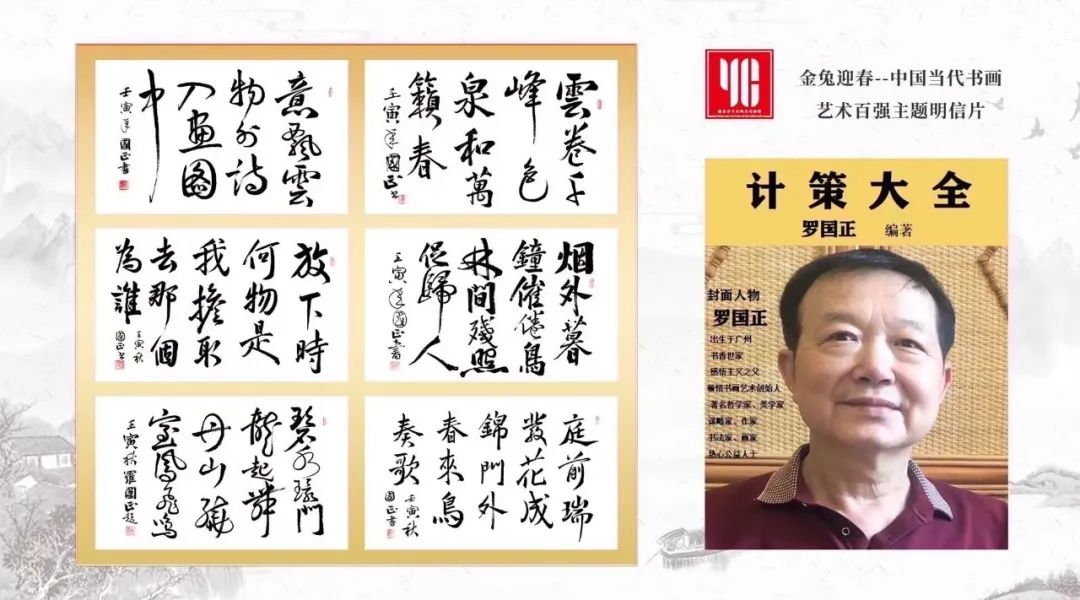 意飄雲
物外詩
入畫圖
中
壬寅年國正書
雲卷千
峰色
泉和萬
籟春
壬寅年國正書
放下時
何物是
我擔取
去那個
為誰
壬寅秋
國正書
烟外暮
鐘催倦鳥
林間殘照
促歸人
壬寅年國正書
碧水環門
龍起舞
丹山繞
室鳳飛鳴
壬寅秋羅國正題
庭前瑞
發花成
錦門外
春來鳥
奏歌
壬寅秋
國正書
金兔迎春--中国当代书画
艺术百强主题明信片
计策大全
罗国正 编著
封面人物
罗国正
出生于广州
书香世家
感悟主义之父
书画艺术创始人
著名哲学家、美学家
谋略家、作家
书法家、画家
热心公益人士